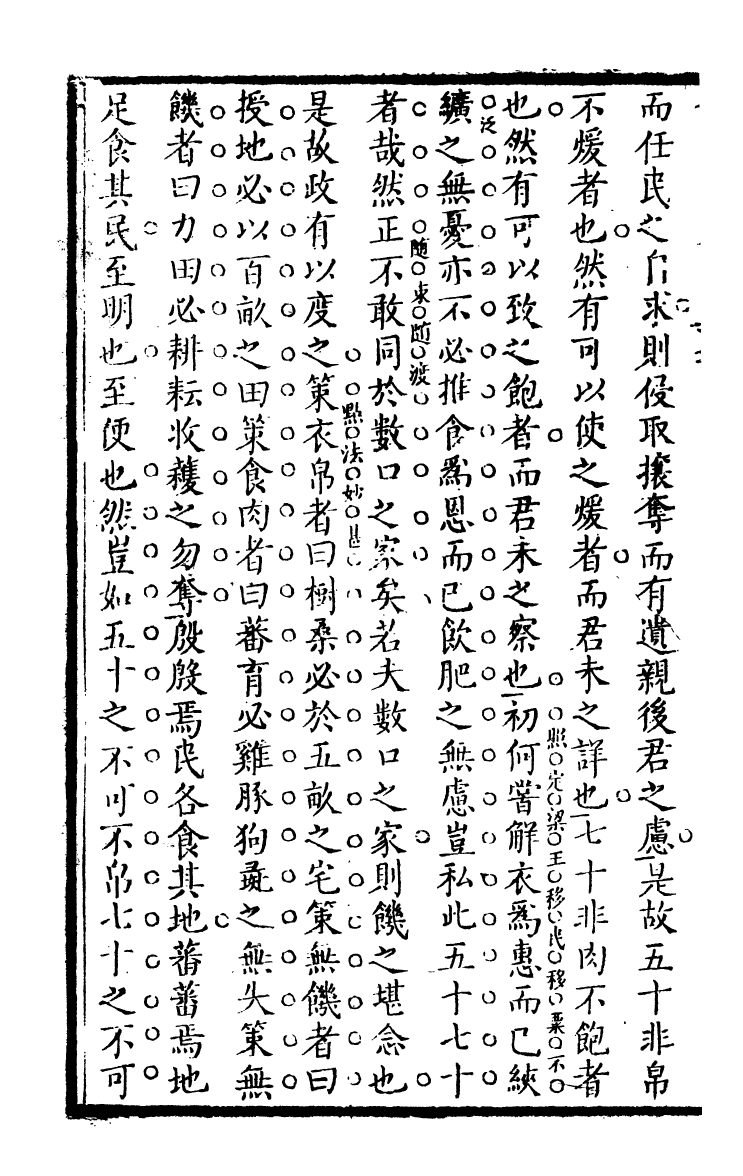 而任民之自求則侵取攘奪而有遺親後君之慮是故五十非帛
不煖者也然有可以使之煖者而君未之詳也七十非肉不飽者
照定梁王移民移粟不
也然有可以致之飽者而君未之察也初何嘗解衣為惠而已綊
泛
纊之無憂亦不必推食為恩而已飲肥之無慮豈私此五十七十
随束随渡
者哉然正不敢同於數口之家矣若夫數口之家則饑之堪念也
點法妙甚
是故政有以度之策衣帛者曰樹桑必於五畝之宅策無饑者曰
授地必以百畝之田策食肉者曰蕃育必雞豚狗彘之無失策無
饑者曰力田必耕耘收穫之勿奪殷殷焉民各食其地蕃蕃焉地
足食其民至明也至便也然豈如五十之不可不帛七十之不可